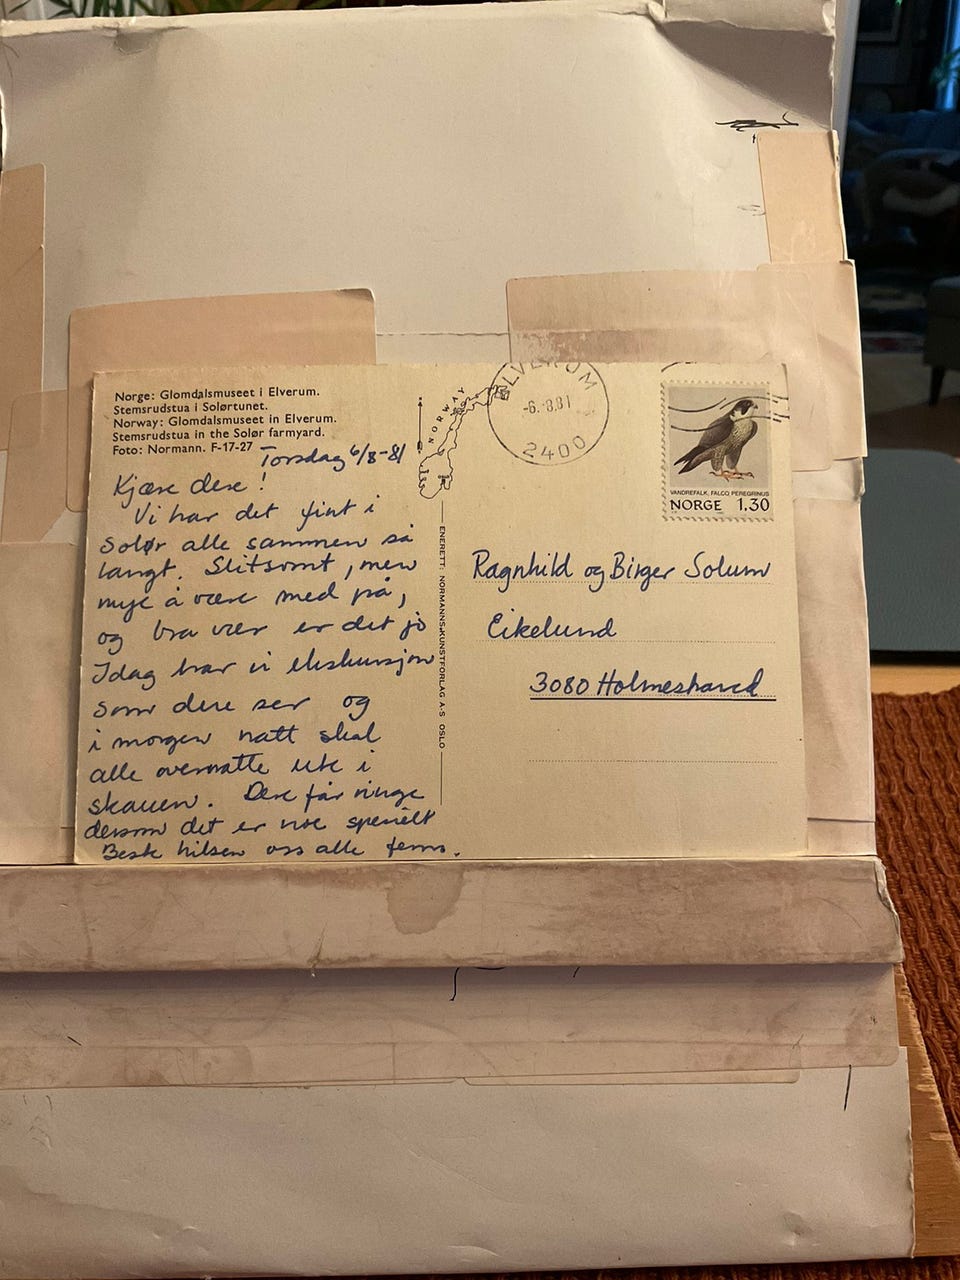 Norge: Glomdalsmuseet i Elverum.
Stemsrudstua i Solørtunet.
Norway: Glomdalsmuseet in Elverum.
Stemsrudstua in the Solør farmyard.
Foto: Normann. F-17-27
Torsdag 6/8-81
Kjære dere!
Vi har det fint i
Solør alle sammen så
langt. Slitsomt, men
mye å være med på,
og bra vær er det jo
Idag har vi ekskursjon
som dere ser og
i morgen natt skal
alle overnatte ute i
skauen. Dere får ringe
dersom det er noe spesielt
Beste hilsen oss alle fem.
NORWAY
ENERETT: NORMANNS KUNSTFORLAG A-S OSLO
ELVERUM
-6.-8.81
2400
VANDREFALK, FALCO PEREGRINUS
NORGE 1,30
Ragnhild og Birger Solum
Eikelund
3080 Holmestrand